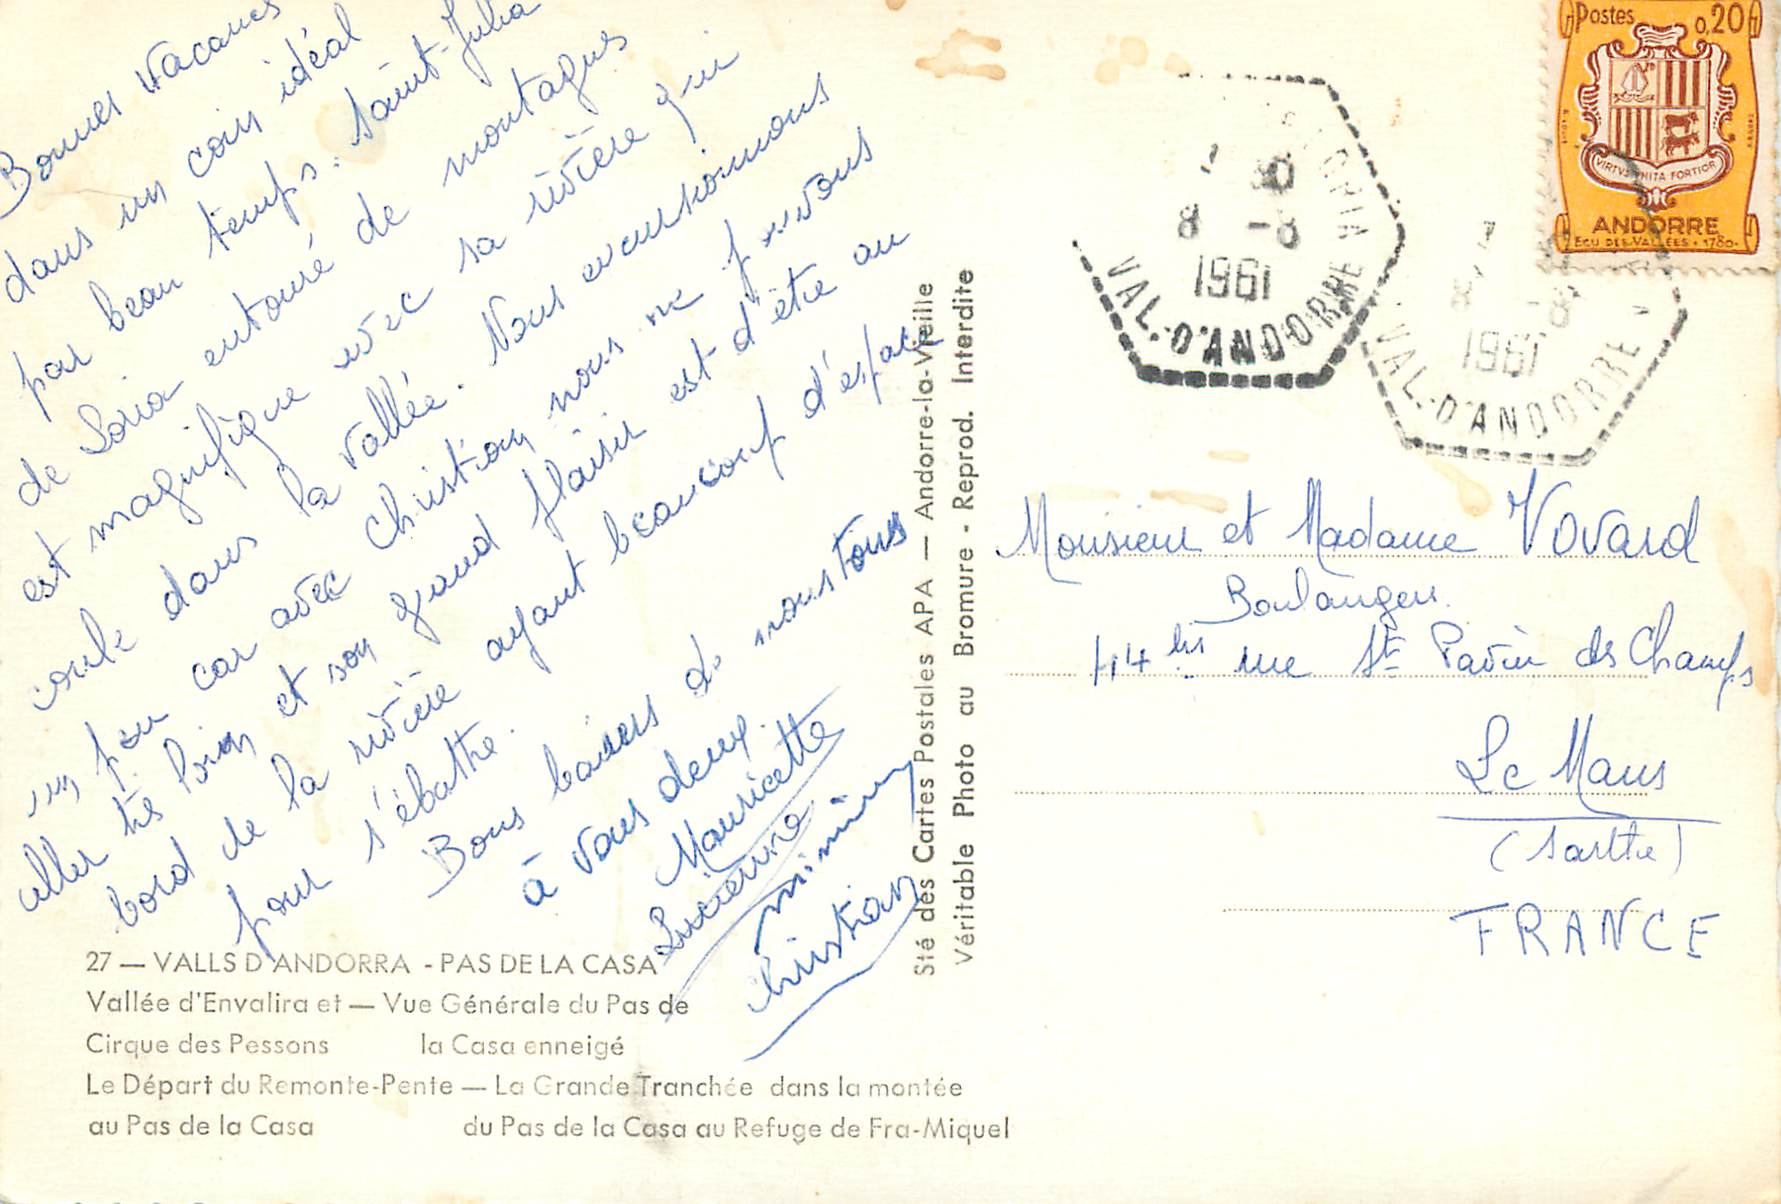 Bonnes vacances
dans un coin idéal
par beau temps. Saint-Julia
de Loria entouré de montagnes
est magnifique avec sa rivière qui
coule dans la vallée. Nous excursionnons
un peu car avec Christian nous ne pouvons
aller très loin et son grand plaisir est d'être au
bord de la rivière ayant beaucoup d'espace
pour s'ébattre.
Bons baisers de nous tous
à vous deux.
Mauricette
Lucienne
mimi
Christian
27 — VALLS D'ANDORRA - PAS DE LA CASA
Vallée d'Envalira et — Vue Générale du Pas de
Cirque des Pessons la Casa enneigé
Le Départ du Remonte-Pente — La Grande Tranchée dans la montée
au Pas de la Casa du Pas de la Casa au Refuge de Fra-Miquel
Sté des Cartes Postales APA — Andorre-la-Vieille
Véritable Photo au Bromure - Reprod. Interdite
Postes 0,20
VIRTVS VNITA FORTIOR
ANDORRE
ECU DES VALLÉES • 1780
8 -8
1961
VAL. D'ANDORRE
8 -8
1961
VAL. D'ANDORRE
Monsieur et Madame Vovard
Boulanger.
44 bis rue St Pavin des Champs
Le Mans
(Sarthe)
FRANCE